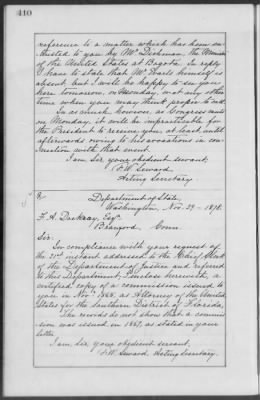 410
reference to a matter which has been en-
trusted to you by Mr. Dichman, the Minister
of the United States at Bogotá. In reply
I have to state that Mr. Evarts himself is
absent but I will be happy to see you
here tomorrow, or Monday, or at any other
time when you may think proper to call.
In as much however, as Congress meets
on Monday, it will be impracticable for
the President to receive you, at least until
afterwards owing to his avocations in con-
nection with that event.
I am Sir, your obedient servant,
F. W. Seward,
Acting Secretary
Department of State,
Washington, Nov. 29 - 1878.
F. A. Esq.
Conn.
Sir:
In compliance with your request of
the 21st instant addressed to the Chief Clerk
of the Department of Justice and referred
to this Department, I enclose herewith, a
certified copy of a commission issued to
you in Nov. as Attorney of the United
States for the Southern District of Florida.
The records do not show that a commis-
sion was issued in as stated in your
letter.
I am, Sir, your obedient servant,
F. W. Seward, Acting Secretary.